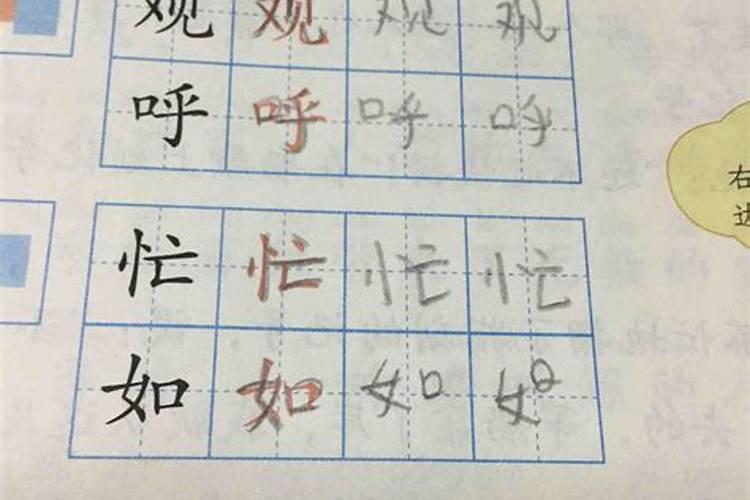 观 观 观 观
呼 呼 呼 呼
忙 忙 忙 忙
如 如 如 如
右
达